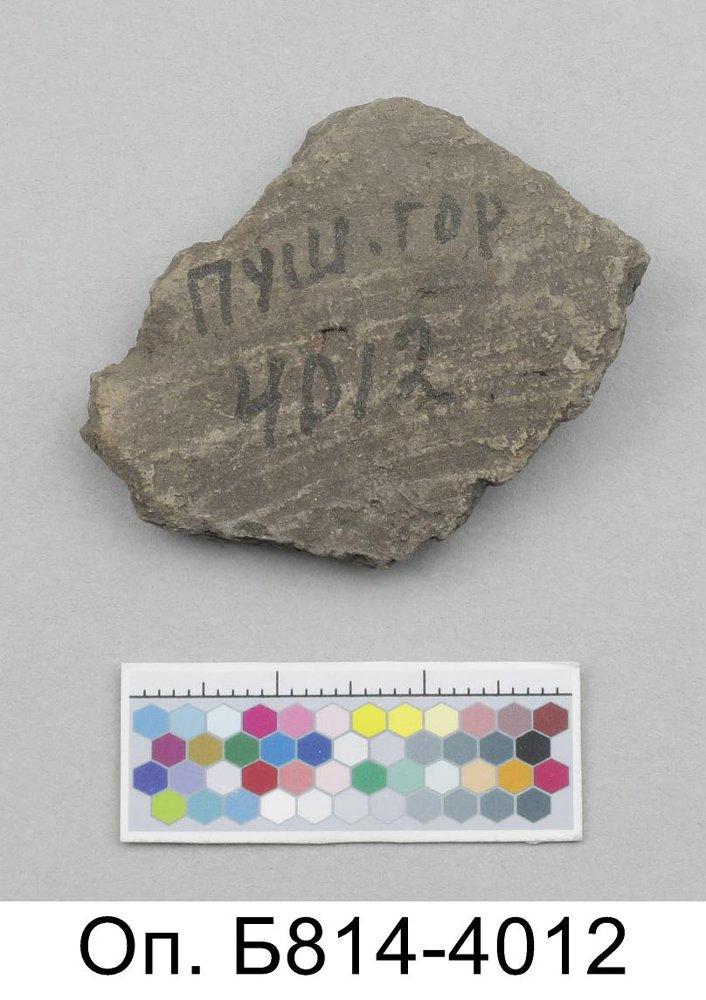 пуш.гор
4012
Оп. Б814-4012